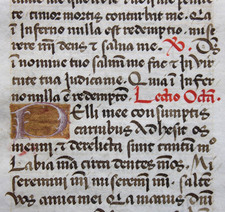 timor mortis conturbat me. Qui a
in inferno nulla est redemptio. mise
rere mei deus et salva me. V. De us
in nomine tuo salvum me fac et in vir
tute tua iudica me. Quia in infer
no nulla e redemptio. Lectio Octa.
Pelli mee consumptis
carnibus Adhesit os
meum: et derelicta sunt tm
labia mea circa dentes meos. Mi
seremini mei miseremini mei. salte
vos amici mei Quia manus dni